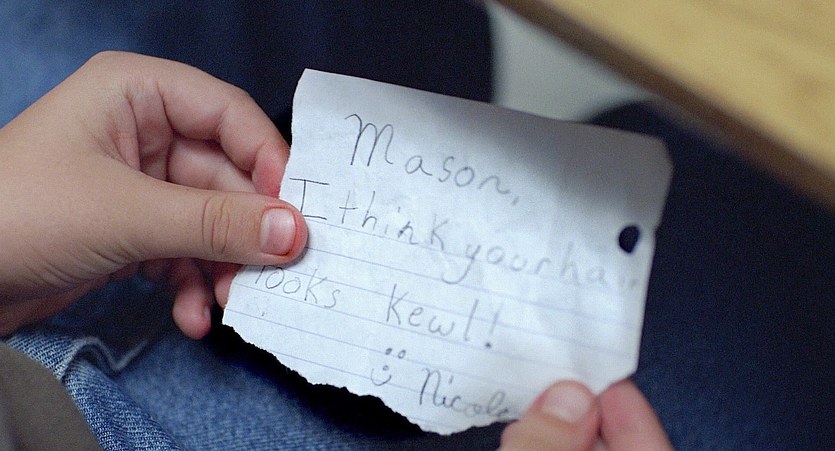 Mason,
I think your hair
looks kewl!
Nicole